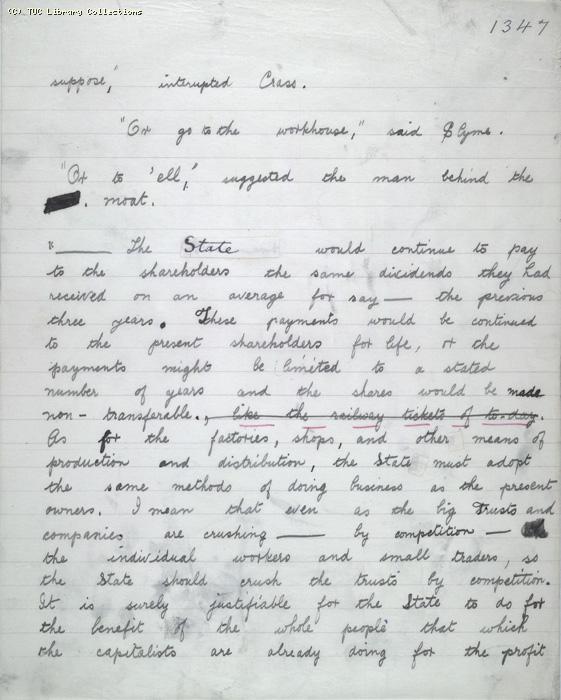 (C) TUC Library Collections
1347
suppose," interrupted Crass.
"Or go to the workhouse," said Slyme.
"Or to 'ell," suggested the man behind the
. moat.
"——— The State would continue to pay
to the shareholders the same dividends they had
received on an average for say — the previous
three years. These payments would be continued
to the present shareholders for life, or the
payments might be limited to a stated
number of years and the shares would be made
non-transferable., like the railway tickets of to-day.
As for the factories, shops, and other means of
production and distribution, the State must adopt
the same methods of doing business as the present
owners. I mean that even as the big Trusts and
companies are crushing —— by competition —
the individual workers and small traders, so
the State should crush the trusts by competition.
It is surely justifiable for the State to do for
the benefit of the whole people that which
the capitalists are already doing for the profit